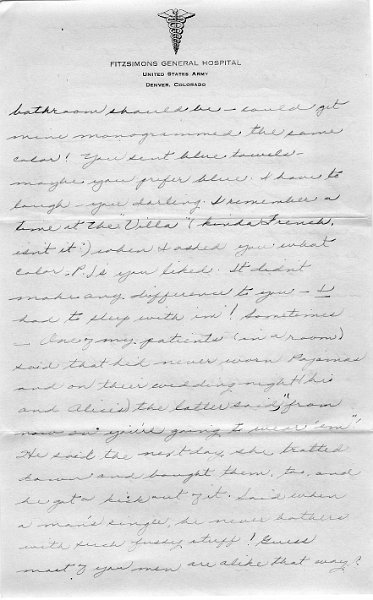 FITZSIMONS GENERAL HOSPITAL
UNITED STATES ARMY
DENVER, COLORADO
bathroom should be - could get
mine monogrammed the same
color! You sent blue towels -
maybe you prefer blue. I have to
laugh - you darling. I remember a
time at the "Villa" (kinda French,
isn't it?) when I asked you what
color P.J's you liked. It didn't
make any difference to you - I
had to sleep with 'em! Sometimes
- One of my patients (in a room)
said that he'd never worn Pajamas
and on their wedding night (his
and Alice's) the latter said, "from
now on you're going to wear 'em"!
He said the next day, she trotted
down and bought them, too, and
he got a kick out of it. Said when
a man's single, he never bothers
with such fussy stuff! Guess
most of you men are alike that way?